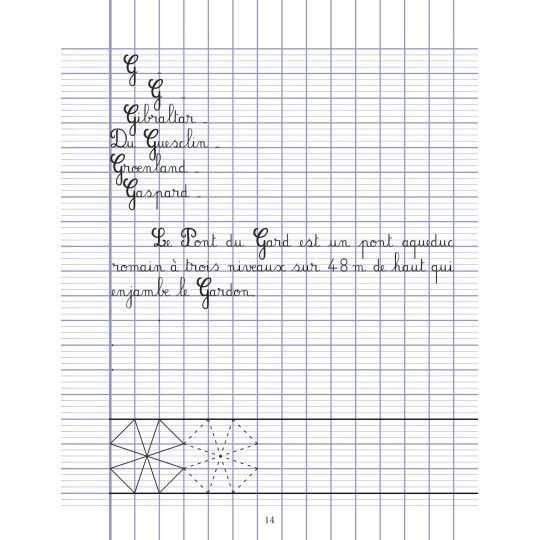 G
G -
Gibraltar -
Du Guesclin -
Groenland -
Gaspard -
Le Pont du Gard est un pont aqueduc
romain à trois niveaux sur 48 m de haut qui
enjambe le Gardon.
14